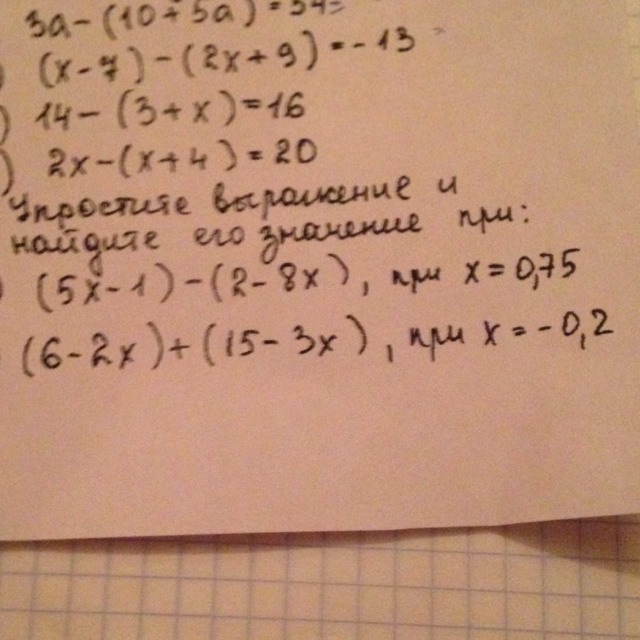 3a-(10+5a)=54
(x-7)-(2x+9)=-13
) 14-(3+x)=16
) 2x-(x+4)=20
Упростите выражение и
найдите его значение при:
(5x-1)-(2-8x), при x=0,75
(6-2x)+(15-3x), при x=-0,2